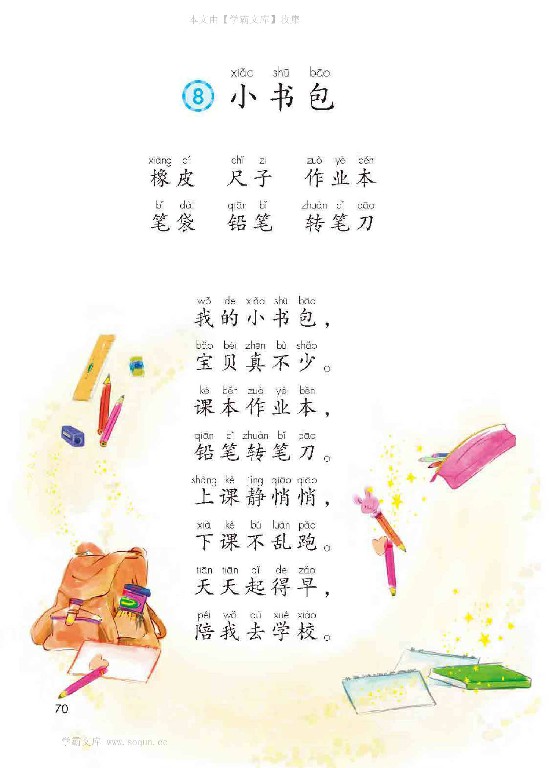 本文由【学霸文库】收集
xiǎo shū bāo
8 小书包
xiàng pí chǐ zi zuò yè běn
橡皮 尺子 作业本
bǐ dài qiān bǐ zhuàn bǐ dāo
笔袋 铅笔 转笔刀
wǒ de xiǎo shū bāo
我的小书包，
bǎo bèi zhēn bù shǎo
宝贝真不少。
kè běn zuò yè běn
课本作业本，
qiān bǐ zhuàn bǐ dāo
铅笔转笔刀。
shàng kè jìng qiāo qiāo
上课静悄悄，
xià kè bú luàn pǎo
下课不乱跑。
tiān tiān qǐ de zǎo
天天起得早，
péi wǒ qù xué xiào
陪我去学校。
70
学霸文库 www.soqun.cc